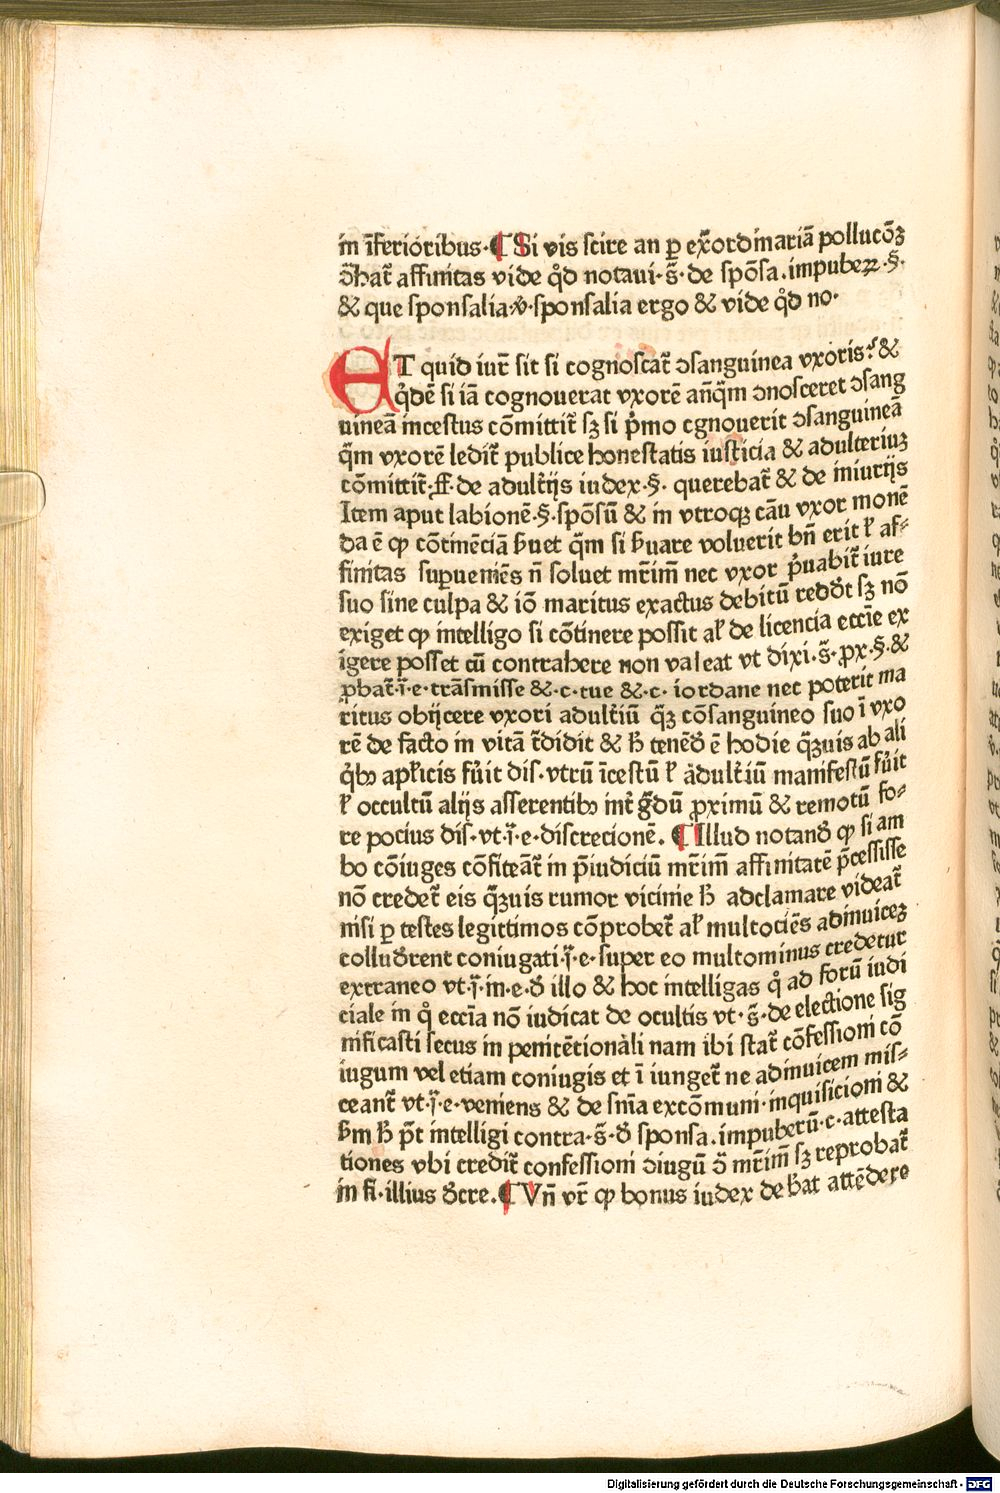 in ĩferioribus·¶ Si vis scire an ꝑ ex̃ordinariã pollucõꝫ
ↄ̃hat᷑ affinitas vide qͦd notaui·s̃·de spõsa.impubeꝝ·§·
& que sponsalia·ꝟ·sponsalia ergo & vide qͦd no·
ET quid iur̃ sit si cognoscat᷑ ↄsanguinea vxoris?&
qͥdẽ si iã cognouerat vxorẽ añq̃m ↄnosceret ↄsang
uineã incestus cõmittit᷑ sꝫ si pͥmo cgnouerit ↄsanguineã
q̃m vxorẽ ledit᷑ publice honestatis iusticia & adulteriuꝫ
cõmittit᷑·ff·de adult̃ijs iudex·§· querebat᷑ & de iniurijs
Item aput labionẽ·§·spõsũ & in vtroqꝫ cãu vxor monẽ
da ẽ ꝙ cõtinẽciã ẜuet q̃m si ẜuare voluerit bñ erit ł af⸗
finitas suꝑueniẽs ñ soluet mr̃im̃ nec vxor pͥuabit᷑ iure
suo sine culpa & iõ maritus exactus debitũ redd̾t sꝫ nõ
exiget ꝙ intelligo si cõtinere possit al̾ de licencia eccĩe ex
ĩgere posset cũ contrahere non valeat vt dixi·s̃·ꝓx·§·&
ꝓbat᷑·ĩ·e·trãsmisse &·c·tue &·c· iordane nec poterit ma
ritus obijcere vxori adult̃iũ q̃ꝫ cõsanguineo suo ĩ vxo
rẽ de facto in vitã t̃didit & ꜧ̃ tenẽd̾ ẽ hodie q̃ꝫuis ab ali
qͥbꝰ apl̾icis fùit dis·vtrũ ĩcestũ ł adult̃iũ manifestũ fùit
ł occultũ alijs asserentibꝰ int᷑ g̃dũ ꝓximũ & remotũ fo⸗
re pocius dis·vt·ĩ·e·discrecionẽ. ¶ Illud notand̾ ꝙ si am
bo cõiuges cõfiteãt᷑ in p̃iudiciũ mr̃im̃ affinitatẽ p̃cessisse
nõ credet᷑ eis q̃ꝫuis rumor vicinie ꜧ̃ adclamare videat᷑
nisi ꝑ testes legittimos cõprobet᷑ al̾ multociẽs adinuiceꝫ
collud̾rent coniugati·ĩ·e·super eo multominus credetur
extraneo vt·ĩ·in·e·d̾ illo & hoc intelligas qͥ ad forũ iudi
ciale in qͦ eccĩa nõ iudicat de ocultis vt·s̃·de electione sig
nificasti secus in penitẽtionali nam ibi stat᷑ cõfessioni cõ
iugum vel etiam coniugis et ĩ iunget᷑ ne adinuicem mis⸗
ceant᷑ vt·ĩ·e·veniens & de snĩa excõmuni·inquisicioni &
ẜm ꜧ̃ p̃t intelligi contra·s̃·d̾ sponsa.impuberũ·c·attesta
tiones vbi credit᷑ confessioni ↄiugũ ↄ̃ mr̃im̃ sꝫ reprobat᷑
in fi·illius d̾cre.¶ Vñ vr̃ ꝙ bonus iudex deb̾at attẽdere
Digitalisierung gefördert durch die Deutsche Forschungsgemeinschaft - DFG